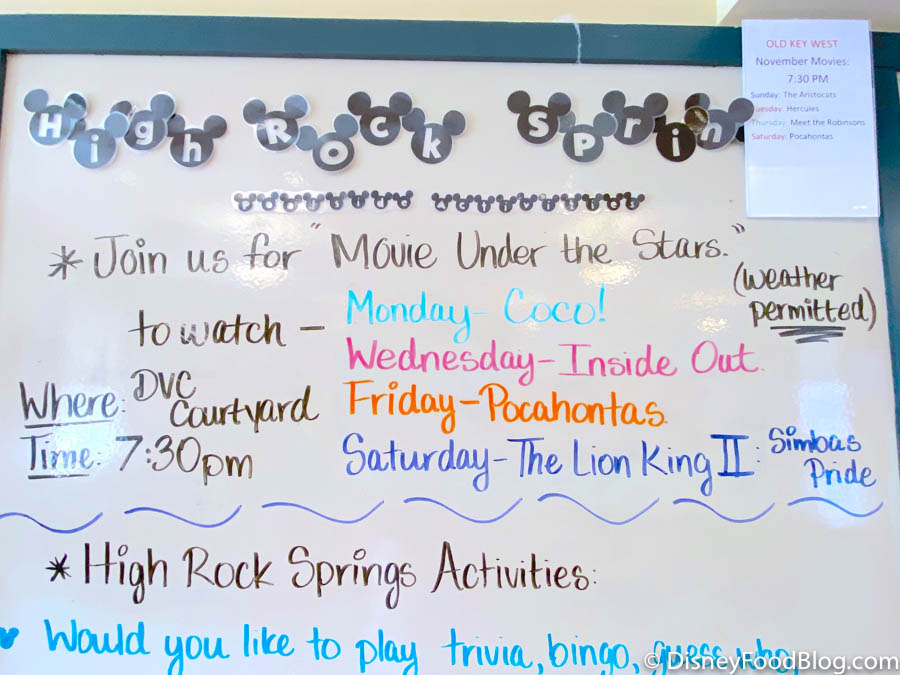 High Rock Sprin
OLD KEY WEST
November Movies:
7:30 PM
Sunday: The Aristocats
Tuesday: Hercules
Thursday: Meet the Robinsons
Saturday: Pocahontas
* Join us for "Movie Under the Stars."
(weather permitted)
to watch –
Monday- Coco!
Wednesday-Inside Out.
Friday-Pocahontas.
Saturday-The Lion King II: Simbas Pride
Where: DVC Courtyard
Time: 7:30pm
* High Rock Springs Activities:
Would you like to play trivia, bingo, guess who
©DisneyFoodBlog.com